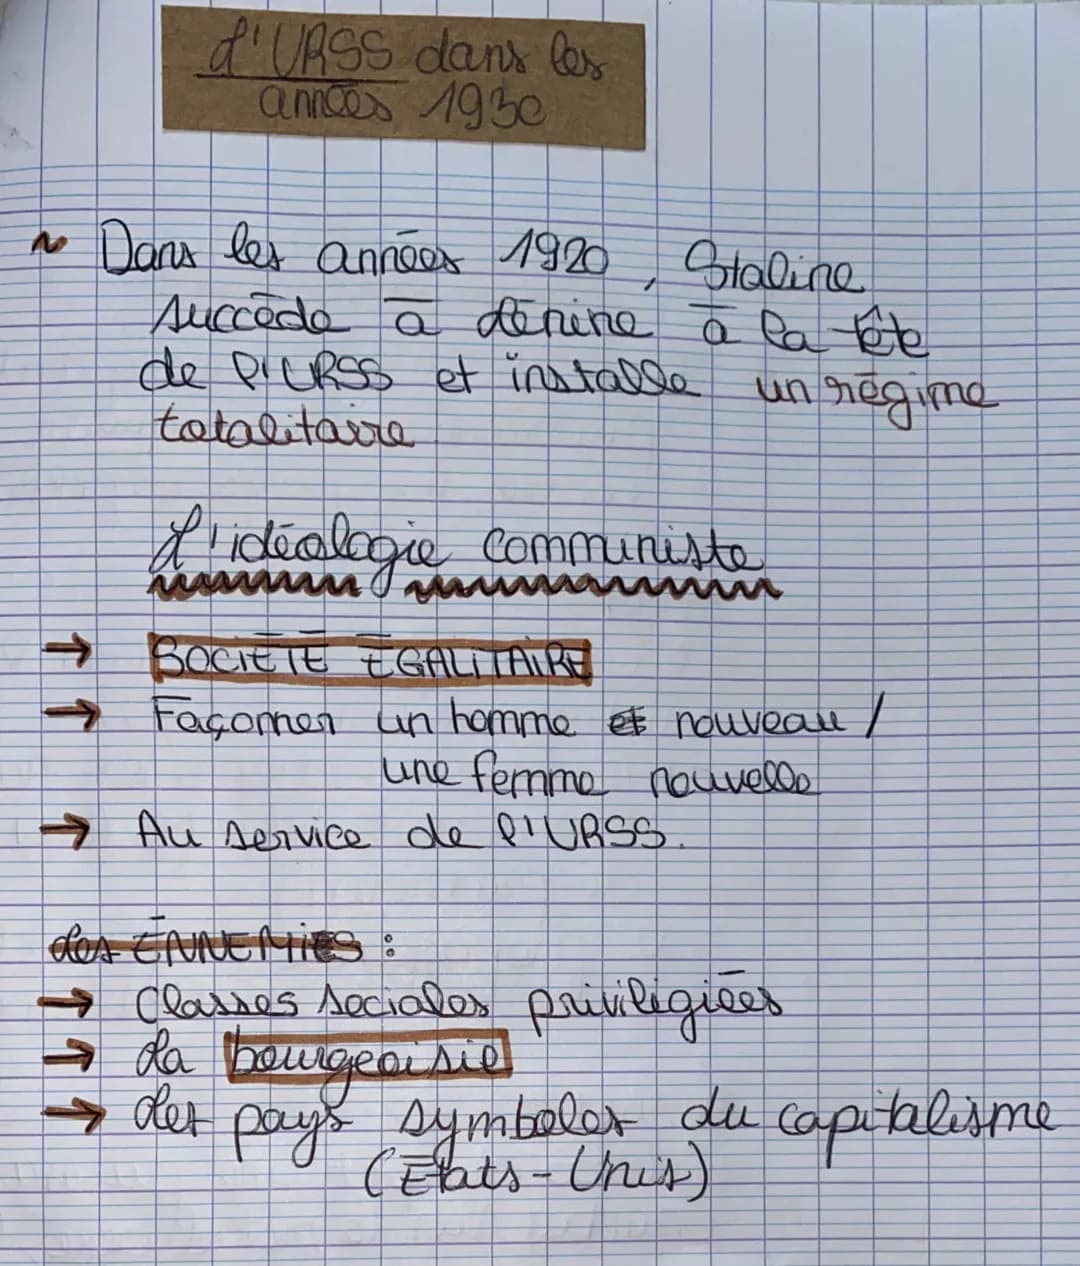 L'URSS dans les
années 1930
~ Dans les années 1920, Staline
succède à Lénine à la tête
de l'URSS et installe un régime
totalitaire
L'idéologie communiste
→ SOCIÉTÉ ÉGALITAIRE
→ Façonner un homme et nouveau /
une femme nouvelle
→ Au service de l'URSS.
Les ENNEMIES :
→ Classes sociales priviligiées
→ La bourgeoisie
→ Les pays symboles du capitalisme
(États-Unis)